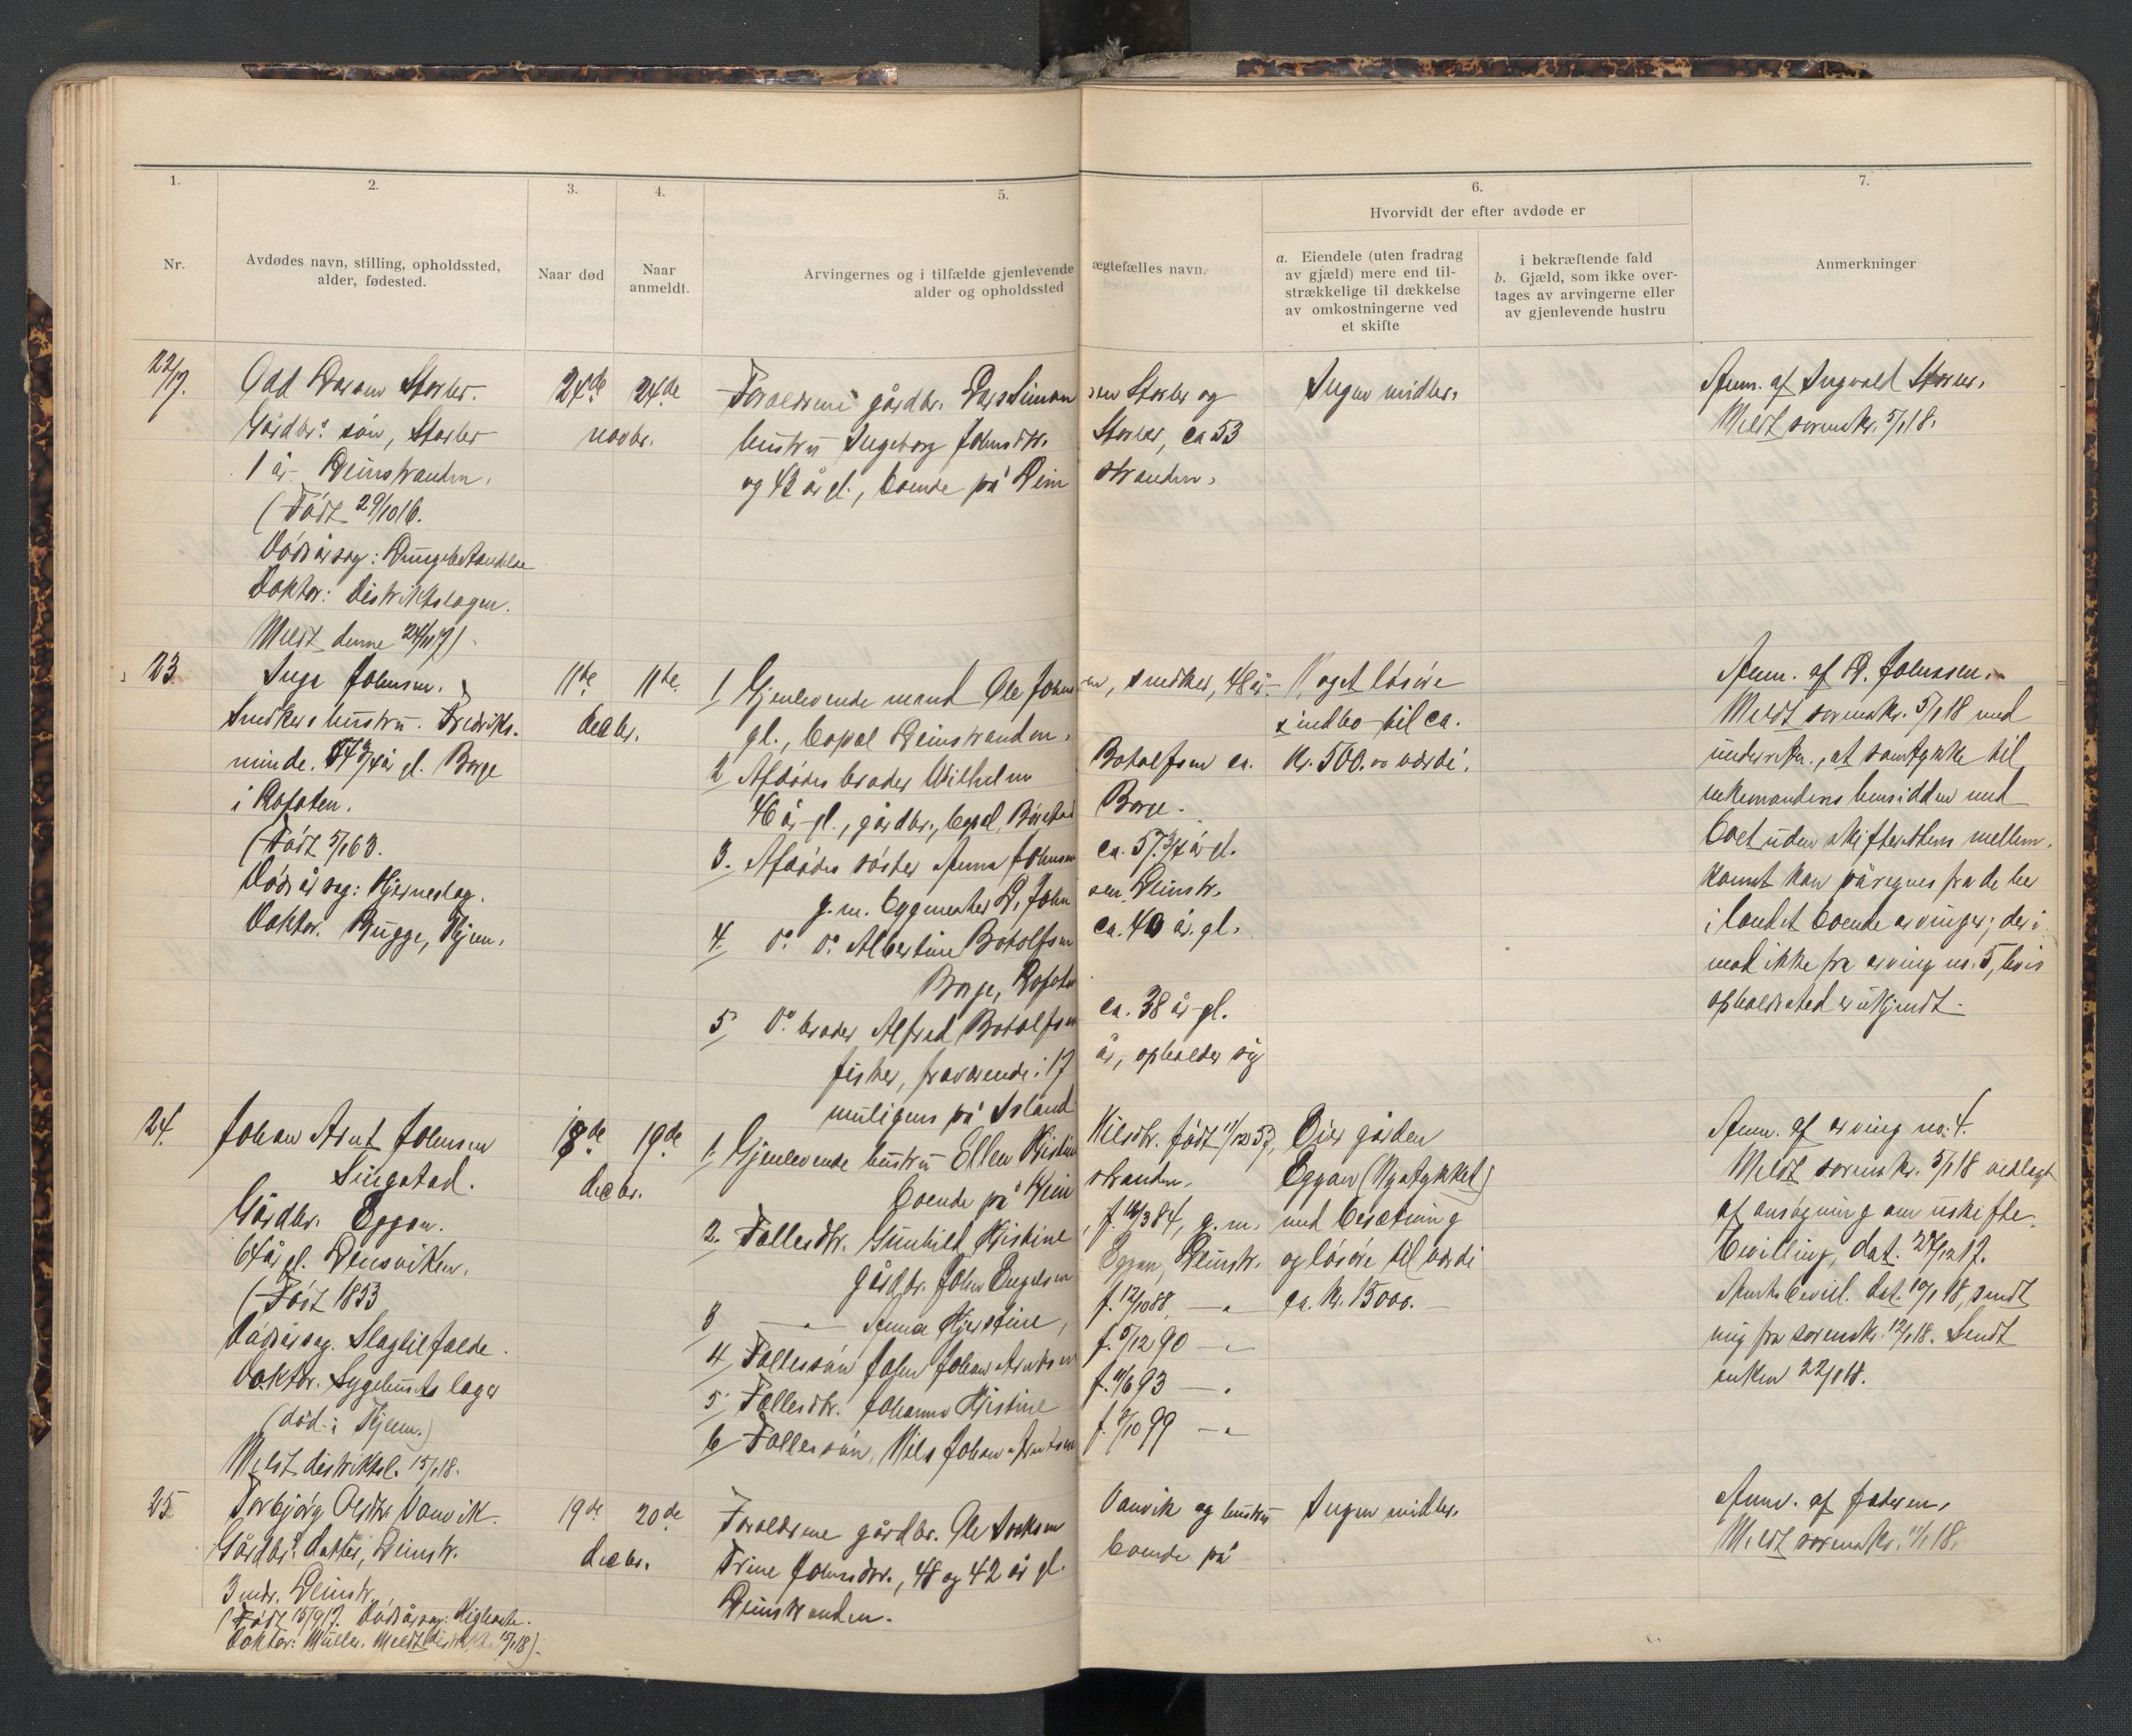 1.
2.
3.
4.
5.
6.
7.
Nr.
Avdødes navn, stilling, opholdssted,
alder, fødested.
Naar død
Naar
anmeldt.
Arvingernes og i tilfælde gjenlevende
alder og opholdssted
ægtefælles navn.
Hvorvidt der efter avdøde er
a. Eiendele (uten fradrag
av gjæld) mere end til-
strækkelige til dækkelse
av omkostningerne ved
et skifte
i bekræftende fald
b. Gjæld, som ikke over-
tages av arvingerne eller
av gjenlevende hustru
Anmerkninger
22/17.
Odd Larsen Storler.
Gårdbr.s søn, Storler
1 år. Leinstranden.
(Født 29/10 16.
Dødsårsag: Lungebetændelse
Doktor: Distriktslægen.
Meldt denne 24/11 17).
24de 24de
novbr.
Forældrene gårdbr. Lars Simon
sen Storler og
hustru Ingeborg Johnsdtr.
Storler, ca 53
og 42 år gl., boende på Lein
stranden.
Ingen midler.
Anm. af Ingvald Storler.
Meldt sorenskr. 5/1 18.
23.
Inga Johnsen.
Snedkers hustru. Fredriks-
minde. 54 3/4 år gl. Borge
i Lofoten.
(Født 5/1 63.
Dødsårsag: Hjerneslag.
Doktor. Bugge, Thjem.
11te 11te
decbr.
1. Gjenlevende mand Ole Johns
en, snedker, 48 år
gl., bopæl Leinstranden.
2. Afdødes broder Wilhelm
Botolfsen ca.
46 år gl., gårdbr., bopæl Børstad
Borge.
3. Afdødes søster Anna Johnsen
ca. 57 3/4 år gl.
g. m. bygmester L. John
sen Leinstr.
4. Do. Do. Albertine Botolfsen
ca. 40 år. gl.
Borge, Lofoten
5. Do. broder Alfred Botolfsen
ca. 38 år gl.
fisker, fraværende i 17
år, opholder sig
muligens på Island
Noget løsøre
& indbo til ca.
kr. 500.00 værdi.
Anm. af L. Johnssen.
Meldt sorenskr. 5/1 18 med
underretn., at samtykke til
enkemandens hensidden med
boet uden skifterettens mellem-
komst kan påregnes fra de her
i landet boende arvinger; deri-
mod ikke fra arving no. 5, hvis
opholdssted er ukjendt.
24.
Johan Arnt Johnsen
Singstad.
Gårdbr. Eggan.
64 år gl. Lensviken.
(Født 1853
Dødsårsag. Slagtilfælde.
Doktor. Sygehusets læge
(død i Thjem.)
Meldt distriktsl. 15/1 18.
18de 19de
decbr.
1. Gjenlevende hustru Ellen Kristine
Nilsdtr. født 11/12 57,
boende på Lein
stranden.
2. Fællesdtr. Gunhild Kristine
, f. 16/3 84, g. m.
gårdbr. John Engelsen
Eggan, Leinstr.
3 — " — Anna Kjerstine,
f. 12/10 88, — "
4. Fællessøn John Johan Arntsen
f. 5/12 90 — "
5. Fællesdtr. Johanna Kristine
f. 11/6 93 — "
6. Fællessøn, Nils Johan Arntsen
f. 7/10 99 — "
Eier gården
Eggan (Nystykket)
med besætning
og løsøre til værdi
ca. kr. 15000.
Anm. af arving no. 4.
Meldt sorenskr. 5/1 18 vedlagt
af ansøgning om uskifte-
bevilling, dat. 27/12 17.
Uskiftebevil. dat. 10/1 18, sendt
mig fra sorenskr. 12/1 18. Sendt
enken 22/1 18.
25.
Torbjørg Olsdtr. Vanvik.
Gårdbr.s datter, Leinstr.
3 mdr. Leinstr.
(Født 15/9 17. Dødsårsag: Kighoste.
Doktor: Müller. Meldt 15/1 18).
19de 20de
decbr.
Forældrene gårdbr. Ole Iveksen
Vanvik og hustru
Trine Johnsdtr., 48 og 42 år gl.
boende på
Leinstranden.
Ingen midler.
Anm. af faderen.
Meldt sorenskr. 11/1 18.